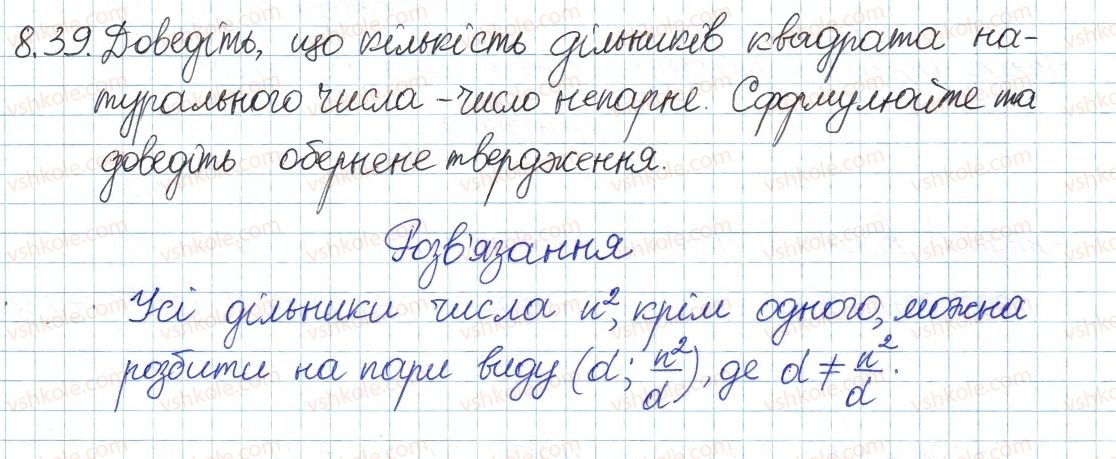 8.39. Доведіть, що кількість дільників квадрата на-
турального числа – число непарне. Сформулюйте та
доведіть обернене твердження.
Розв'язання
Усі дільники числа n², крім одного, можна
розбити на пари виду (d; n²/d), де d ≠ n²/d.